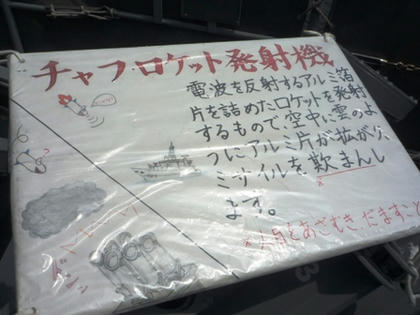 チャフロケット発射機
電波を反射するアルミ箔
片を詰めたロケットを発射
するもので、空中に雲のよ
うにアルミ片が拡がり、
ミサイルを欺まんし
ます。
をあざむき、だますこと